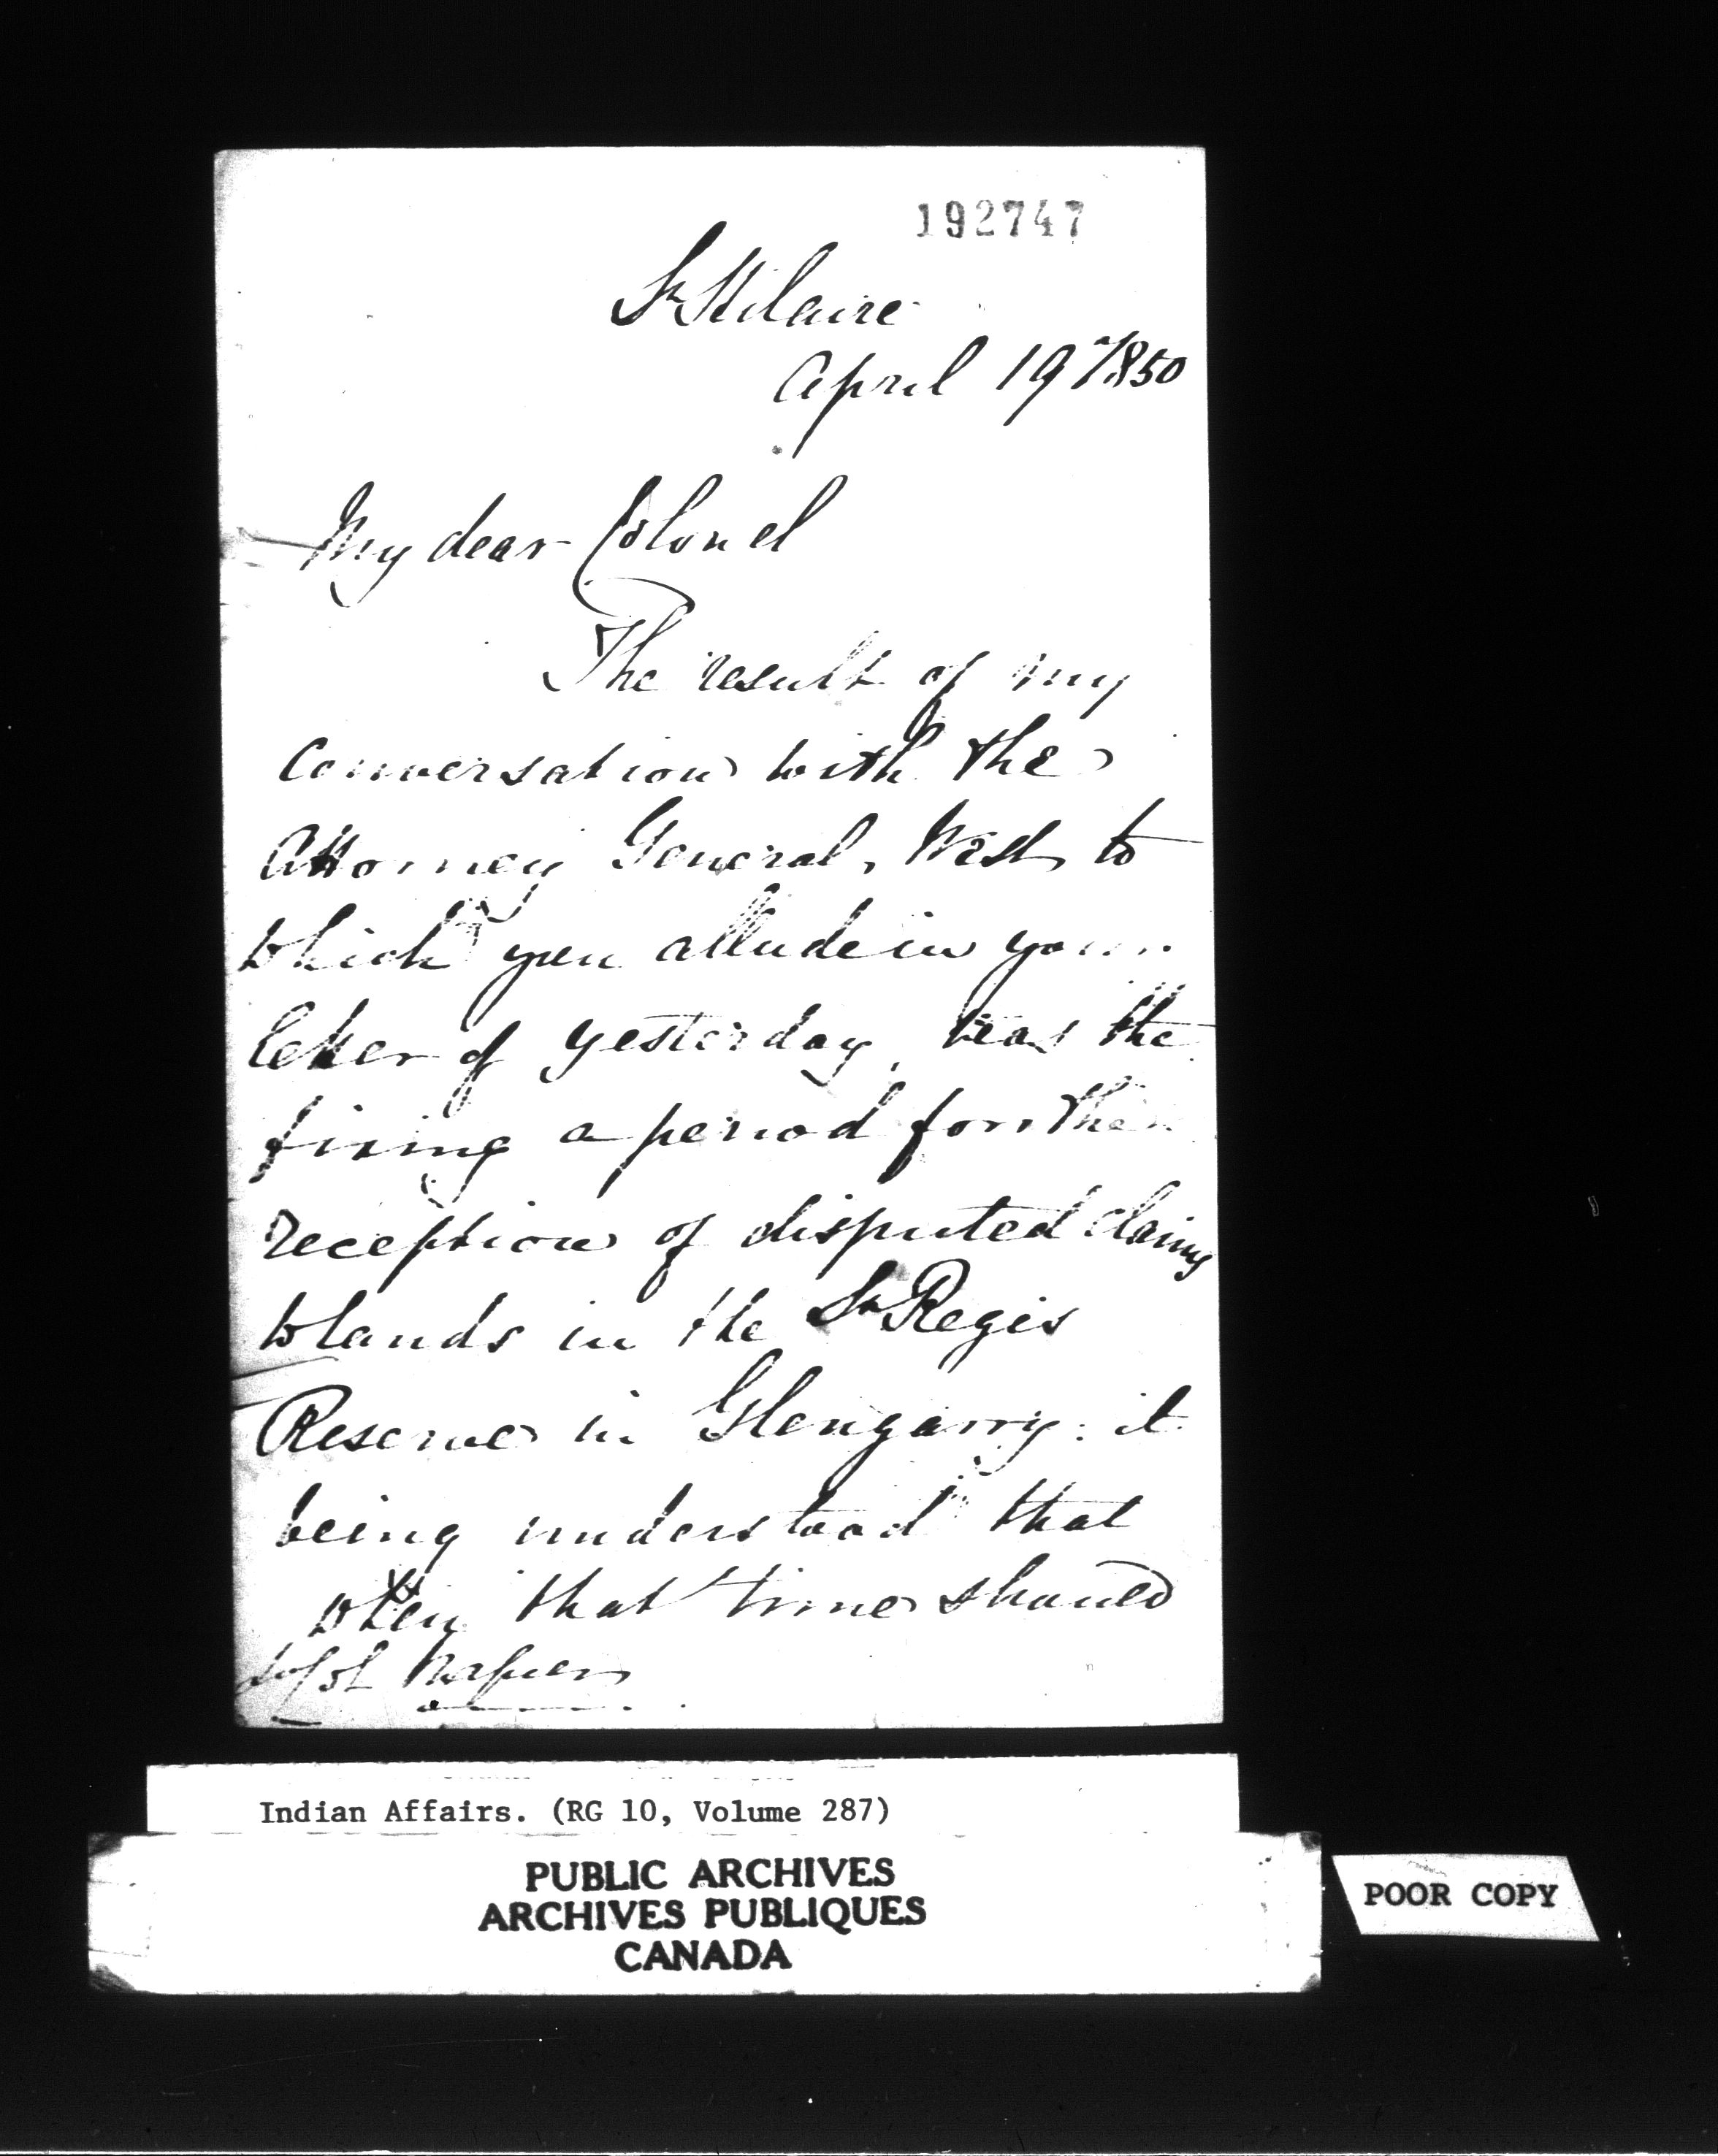 192747
St Hilaire
April 19th 1850
My dear Colonel
The result of my
Conversation with the
Attorney General, West, to
which you allude in your
letter of yesterday, was the
fixing a period for the
reception of disputed claims
to lands in the St Regis
Reserve in Glengarry: it
being understood that
when that time should
Napier
Indian Affairs. (RG 10, Volume 287)
PUBLIC ARCHIVES
ARCHIVES PUBLIQUES
CANADA
POOR COPY